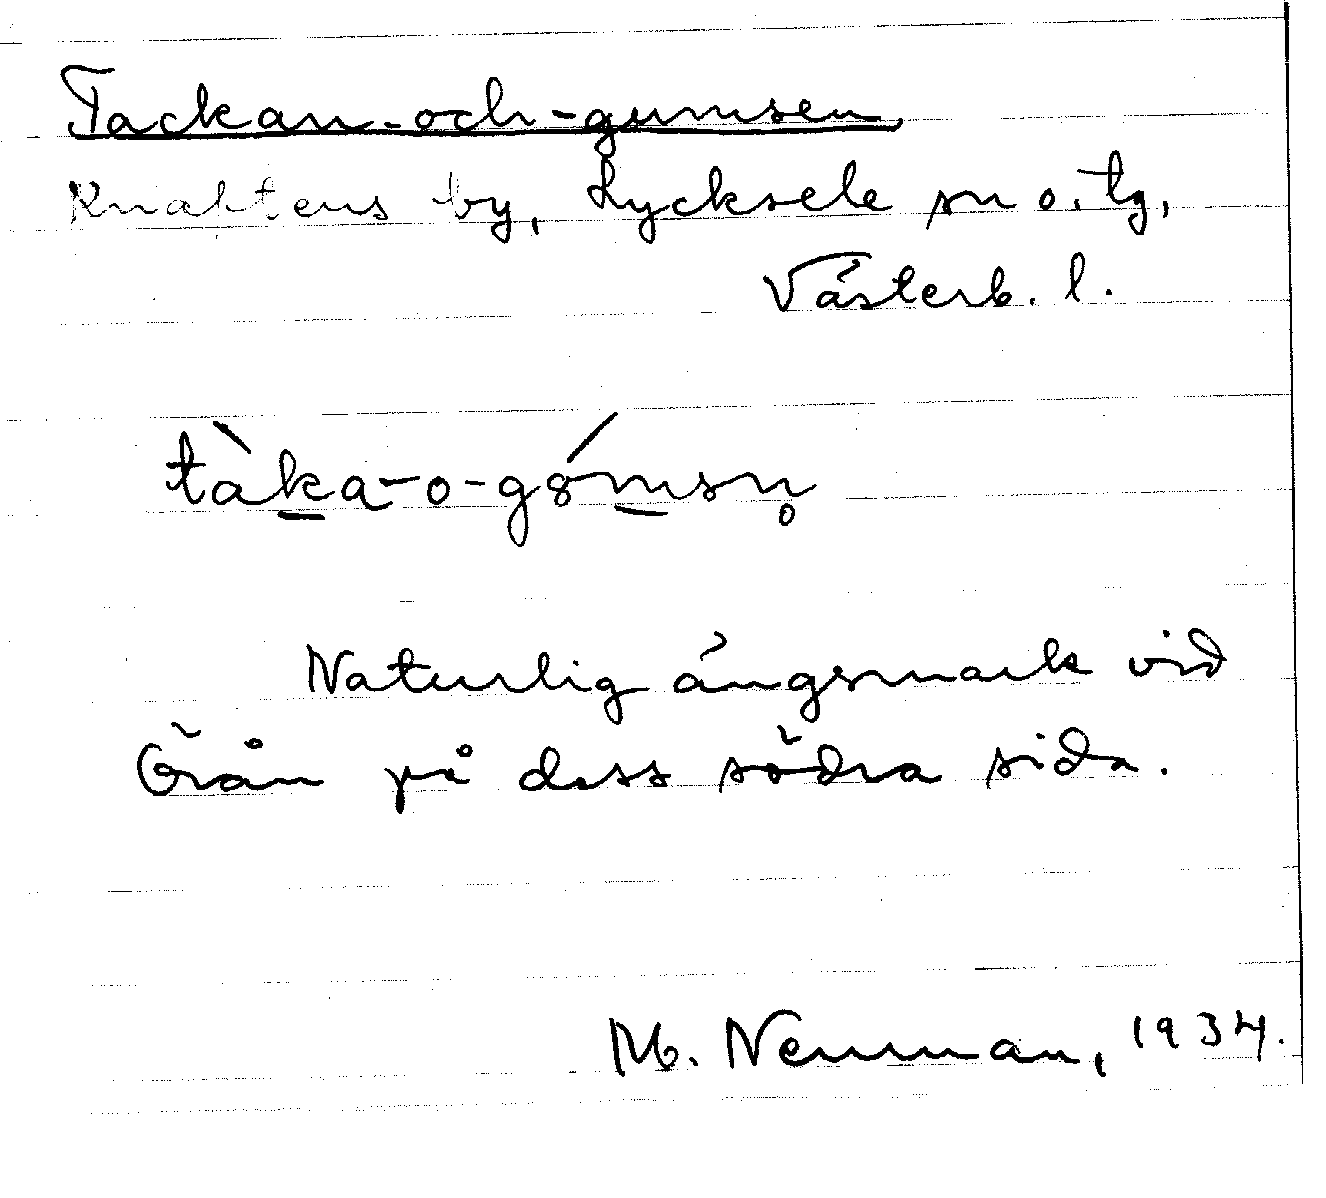 Tackan-och-gumsen
Knaften s by, Lycksele sn o. tg,
Västerb. l.
tàka-o-gó̤msn̥
Naturlig ängsmark vid
Örån på dess södra sida.
M. Nenman, 1934.